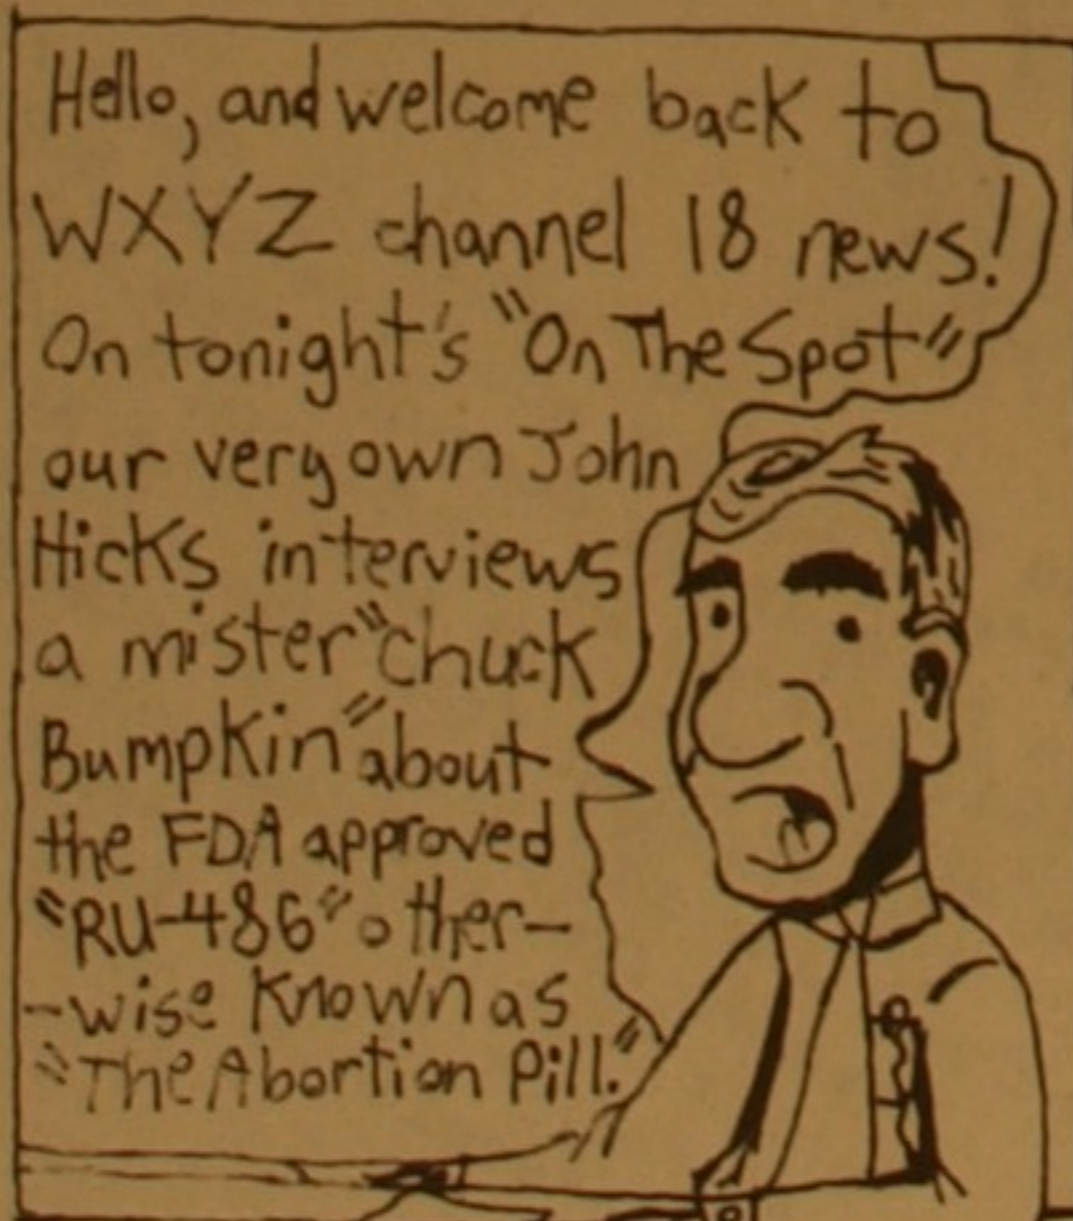 Hello, and welcome back to
WXYZ channel 18 news!
On tonight's "On The Spot"
our very own John
Hicks interviews
a mister "chuck
Bumpkin" about
the FDA approved
"RU-486" other-
-wise known as
"The Abortion Pill."